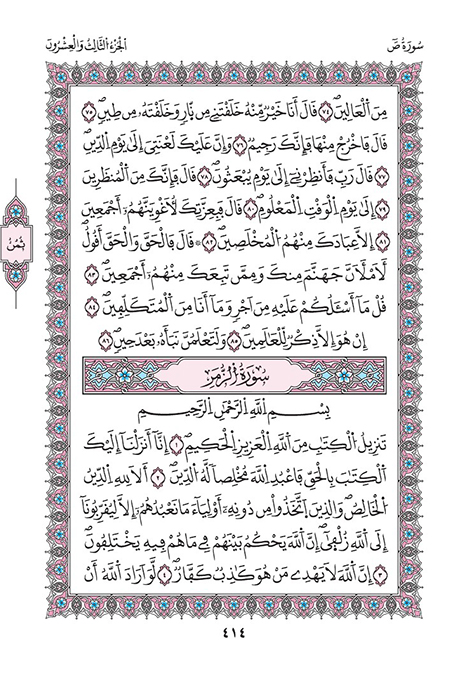 سُورَةُ صٓ
الجُزْءُ الثَّالِثُ وَالْعِشْرُونَ
مِنَ اَ۬لْعَالِينَۖ ٧٤ قَالَ أَنَا خَيْرٞ مِّنْهُ خَلَقْتَنِے مِن نّ۪ارٖ وَخَلَقْتَهُۥ مِن طِينٖۖ ٧٥
قَالَ فَاخْرُجْ مِنْهَا فَإِنَّكَ رَجِيمٞۖ ٧٦ وَإِنَّ عَلَيْكَ لَعْنَتِيَ إِلَىٰ يَوْمِ اِ۬لدِّينِۖ
٧٧ قَالَ رَبِّ فَأَنظِرْنِےٓ إِلَىٰ يَوْمِ يُبْعَثُونَۖ ٧٨ قَالَ فَإِنَّكَ مِنَ اَ۬لْمُنظَرِينَ
٧٩ إِلَىٰ يَوْمِ اِ۬لْوَقْتِ اِ۬لْمَعْلُومِۖ ٨٠ قَالَ فَبِعِزَّتِكَ لَأُغْوِيَنَّهُمُۥٓ أَجْمَعِينَ
٨١ إِلَّا عِبَادَكَ مِنْهُمُ اُ۬لْمُخْلَصِينَۖ ٨٢ قَالَ فَالْحَقَّ وَالْحَقَّ أَقُولُ
لَأَمْلَأَنَّ جَهَنَّمَ مِنكَ وَمِمَّن تَبِعَكَ مِنْهُمُۥٓ أَجْمَعِينَۖ ٨٣
قُلْ مَآ أَسْـَٔلُكُمْ عَلَيْهِ مِنَ اَجْرٖ وَمَآ أَنَا مِنَ اَ۬لْمُتَكَلِّفِينَۖ ٨٤
إِنْ هُوَ إِلَّا ذِكْرٞ لِّلْعَٰلَمِينَۖ ٨٥ وَلَتَعْلَمُنَّ نَبَأَهُۥ بَعْدَ حِينِۖ ٨٦
ثُمُن
سُورَةُ الزُّمَرِ
بِسْمِ اِ۬للَّهِ اِ۬لرَّحْمَٰنِ اِ۬لرَّحِيمِ
تَنزِيلُ اُ۬لْكِتَٰبِ مِنَ اَ۬للَّهِ اِ۬لْعَزِيزِ اِ۬لْحَكِيمِۖ ١ إِنَّآ أَنزَلْنَآ إِلَيْكَ
اَ۬لْكِتَٰبَ بِالْحَقِّ فَاعْبُدِ اِ۬للَّهَ مُخْلِصاٗ لَّهُ اُ۬لدِّينَۖ ٢ أَلَا لِلهِ اِ۬لدِّينُ
اُ۬لْخَالِصُۖ وَالذِينَ اَ۪تَّخَذُواْ مِن دُونِهِۦٓ أَوْلِيَآءَ مَا نَعْبُدُهُمُۥٓ إِلَّا لِيُقَرِّبُونَآ
إِلَى اَ۬للَّهِ زُلْف۪ىٰٓۖ إِنَّ اَ۬للَّهَ يَحْكُمُ بَيْنَهُمْ فِے مَا هُمْ فِيهِ يَخْتَلِفُونَۖ
٣ إِنَّ اَ۬للَّهَ لَا يَهْدِے مَنْ هُوَ كَٰذِبٞ كَفَّارٞۖ ٤ لَّوَ اَرَادَ اَ۬للَّهُ أَنْ
٤١٤